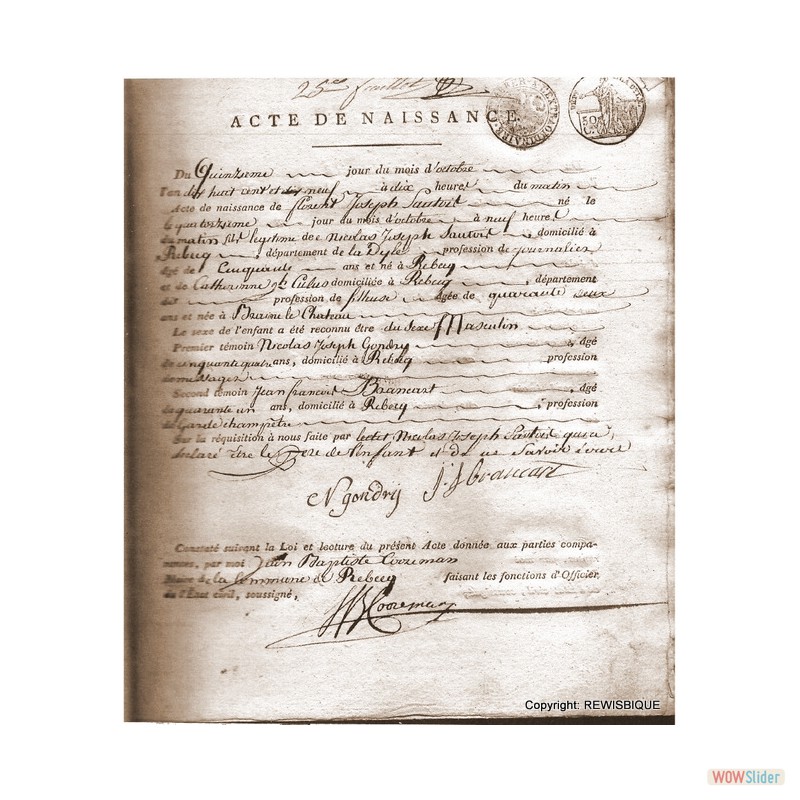 25me feuillet
ACTE DE NAISSANCE.
Du Quinzieme jour du mois d'octobre
l'an dix huit cent et dix neuf à dix heures du matin
Acte de naissance de florent Joseph Sautoit né le
le quatorzieme jour du mois d'octobre à neuf heures
du matin fils legitime de Nicolas Joseph Sautoit domicilié à
Rebecq, département de la Dyle profession de journalier
âgé de Cinquante ans et né à Rebecq
et de Catherinne domiciliée à Rebecq, département
dit profession de fileuse âgée de quarante deux
ans et née à Braine le Chateau
Le sexe de l'enfant a été reconnu être du sexe Masculin
Premier témoin Nicolas Joseph Gondry, âgé
de cinquante quatre ans, domicilié à Rebecq profession
de messager
Second témoin Jean francois Brancart, âgé
de quarante un ans, domicilié à Rebecq, profession
de Garde champêtre
Sur la réquisition à nous faite par ledit Nicolas Joseph Sautoit qui a
declaré être le Pere de l'enfant et de ne Savoir écrire
N gondrij J. J Brancart
Constaté suivant la Loi et lecture du présent Acte donnée aux parties compa-
rantes, par moi Jean Baptiste Cooreman
Maire de la Commune de Rebecq faisant les fonctions d'Officier
de l'État civil, soussigné,
JB Cooreman
Copyright: REWISBIQUE
WOWSlider